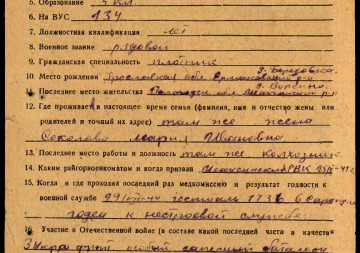 5. Образование 3 кл.
6. На ВУС 134
7. Должностная квалификация нет
8. Военное звание рядовой
9. Гражданская специальность плотник
10. Место рождения Ярославская обл.
11. Последнее место жительства обл.
12. Где проживает в настоящее время семья (фамилия, имя и отчество жены или
родителей и точный их адрес) там же жена
Соколова Мария Ивановна
13. Последнее место работы и должность там же колхозник
14. Каким райгорвоенкоматом и когда призван РВК
15. Когда и где проходил последний раз медкомиссию и результат годности к
военной службе 1736
годен к нестроевой службе
16. Участие в Отечественной войне (в составе какой последней части в качестве
3 Укра фронт саперный батальон